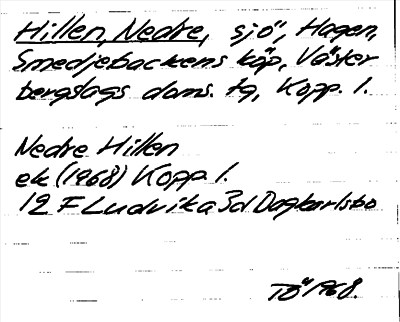 Hillen, Nedre, sjö, Hagen,
Smedjebackens köp, Väster
bergslags doms. tg, Kopp. l.
Nedre Hillen
ek (1968) Kopp l.
12 F Ludvika 3d Dagkarlsbo
TÖ 1968.